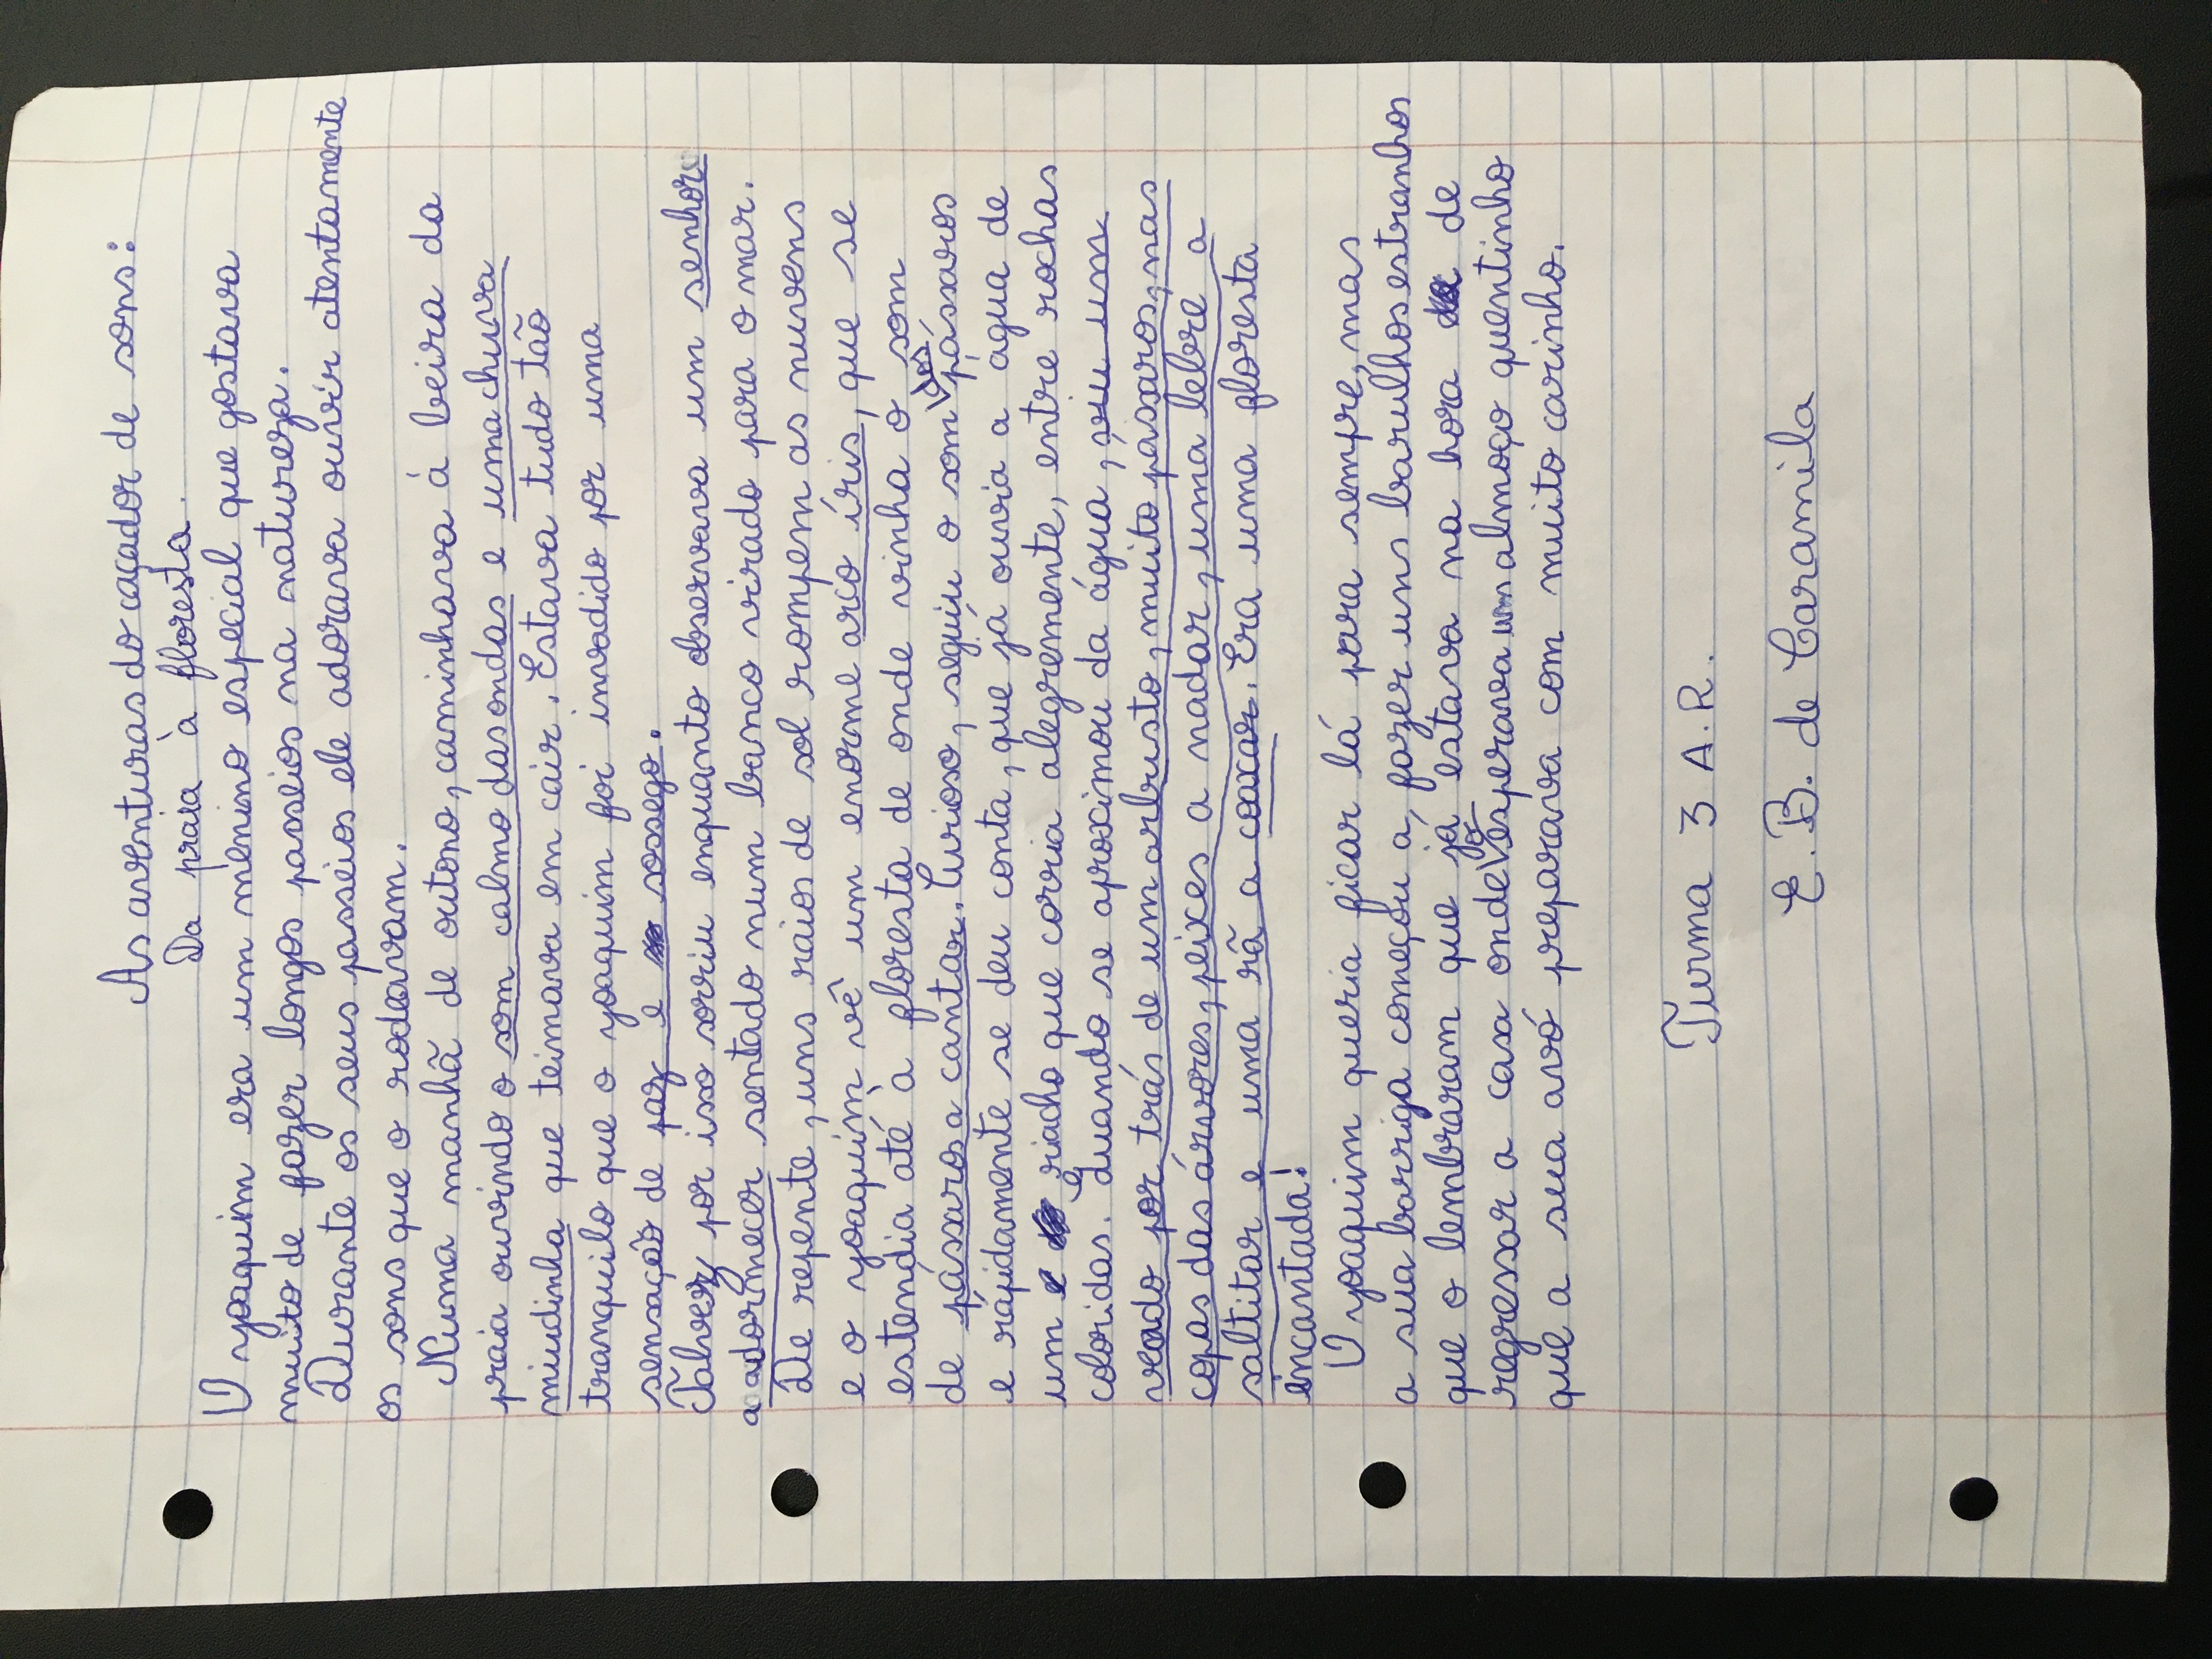 As aventuras do caçador de sons:
Da praia à floresta.
O Joaquim era um menino especial que gostava
muito de fazer longos passeios na natureza.
Durante os seus passeios ele adorava ouvir atentamente
os sons que o rodeavam.
Numa manhã de outono, caminhava à beira da
praia ouvindo o som calmo das ondas e uma chuva
miudinha que teimava em cair. Estava tudo tão
tranquilo que o Joaquim foi invadido por uma
sensação de paz e sossego.
Talvez por isso sorriu enquanto observava um senhor
a adormecer sentado num banco virado para o mar.
De repente, uns raios de sol rompem as nuvens
e o Joaquim vê um enorme arco íris, que se
estendia até à floresta de onde vinha o som
de pássaros a cantar. Curioso, seguiu o som dos pássaros
e rápidamente se deu conta, que já ouvia a água de
um riacho que corria alegremente, entre rochas
coloridas. Quando se aproximou da água, viu um
veado por trás de um arbusto, muito pássaros, nas
copas das árvores, peixes a nadar, uma lebre a
saltitar e uma rã a coaxar. Era uma floresta
encantada!
O Joaquim queria ficar lá para sempre, mas
a sua barriga começou a fazer uns barulhos estranhos
que o lembraram que já estava na hora de
regressar a casa onde o esperava um almoço quentinho
que a sua avó preparava com muito carinho.
Turma 3 A.R.
E. B. de Caramila